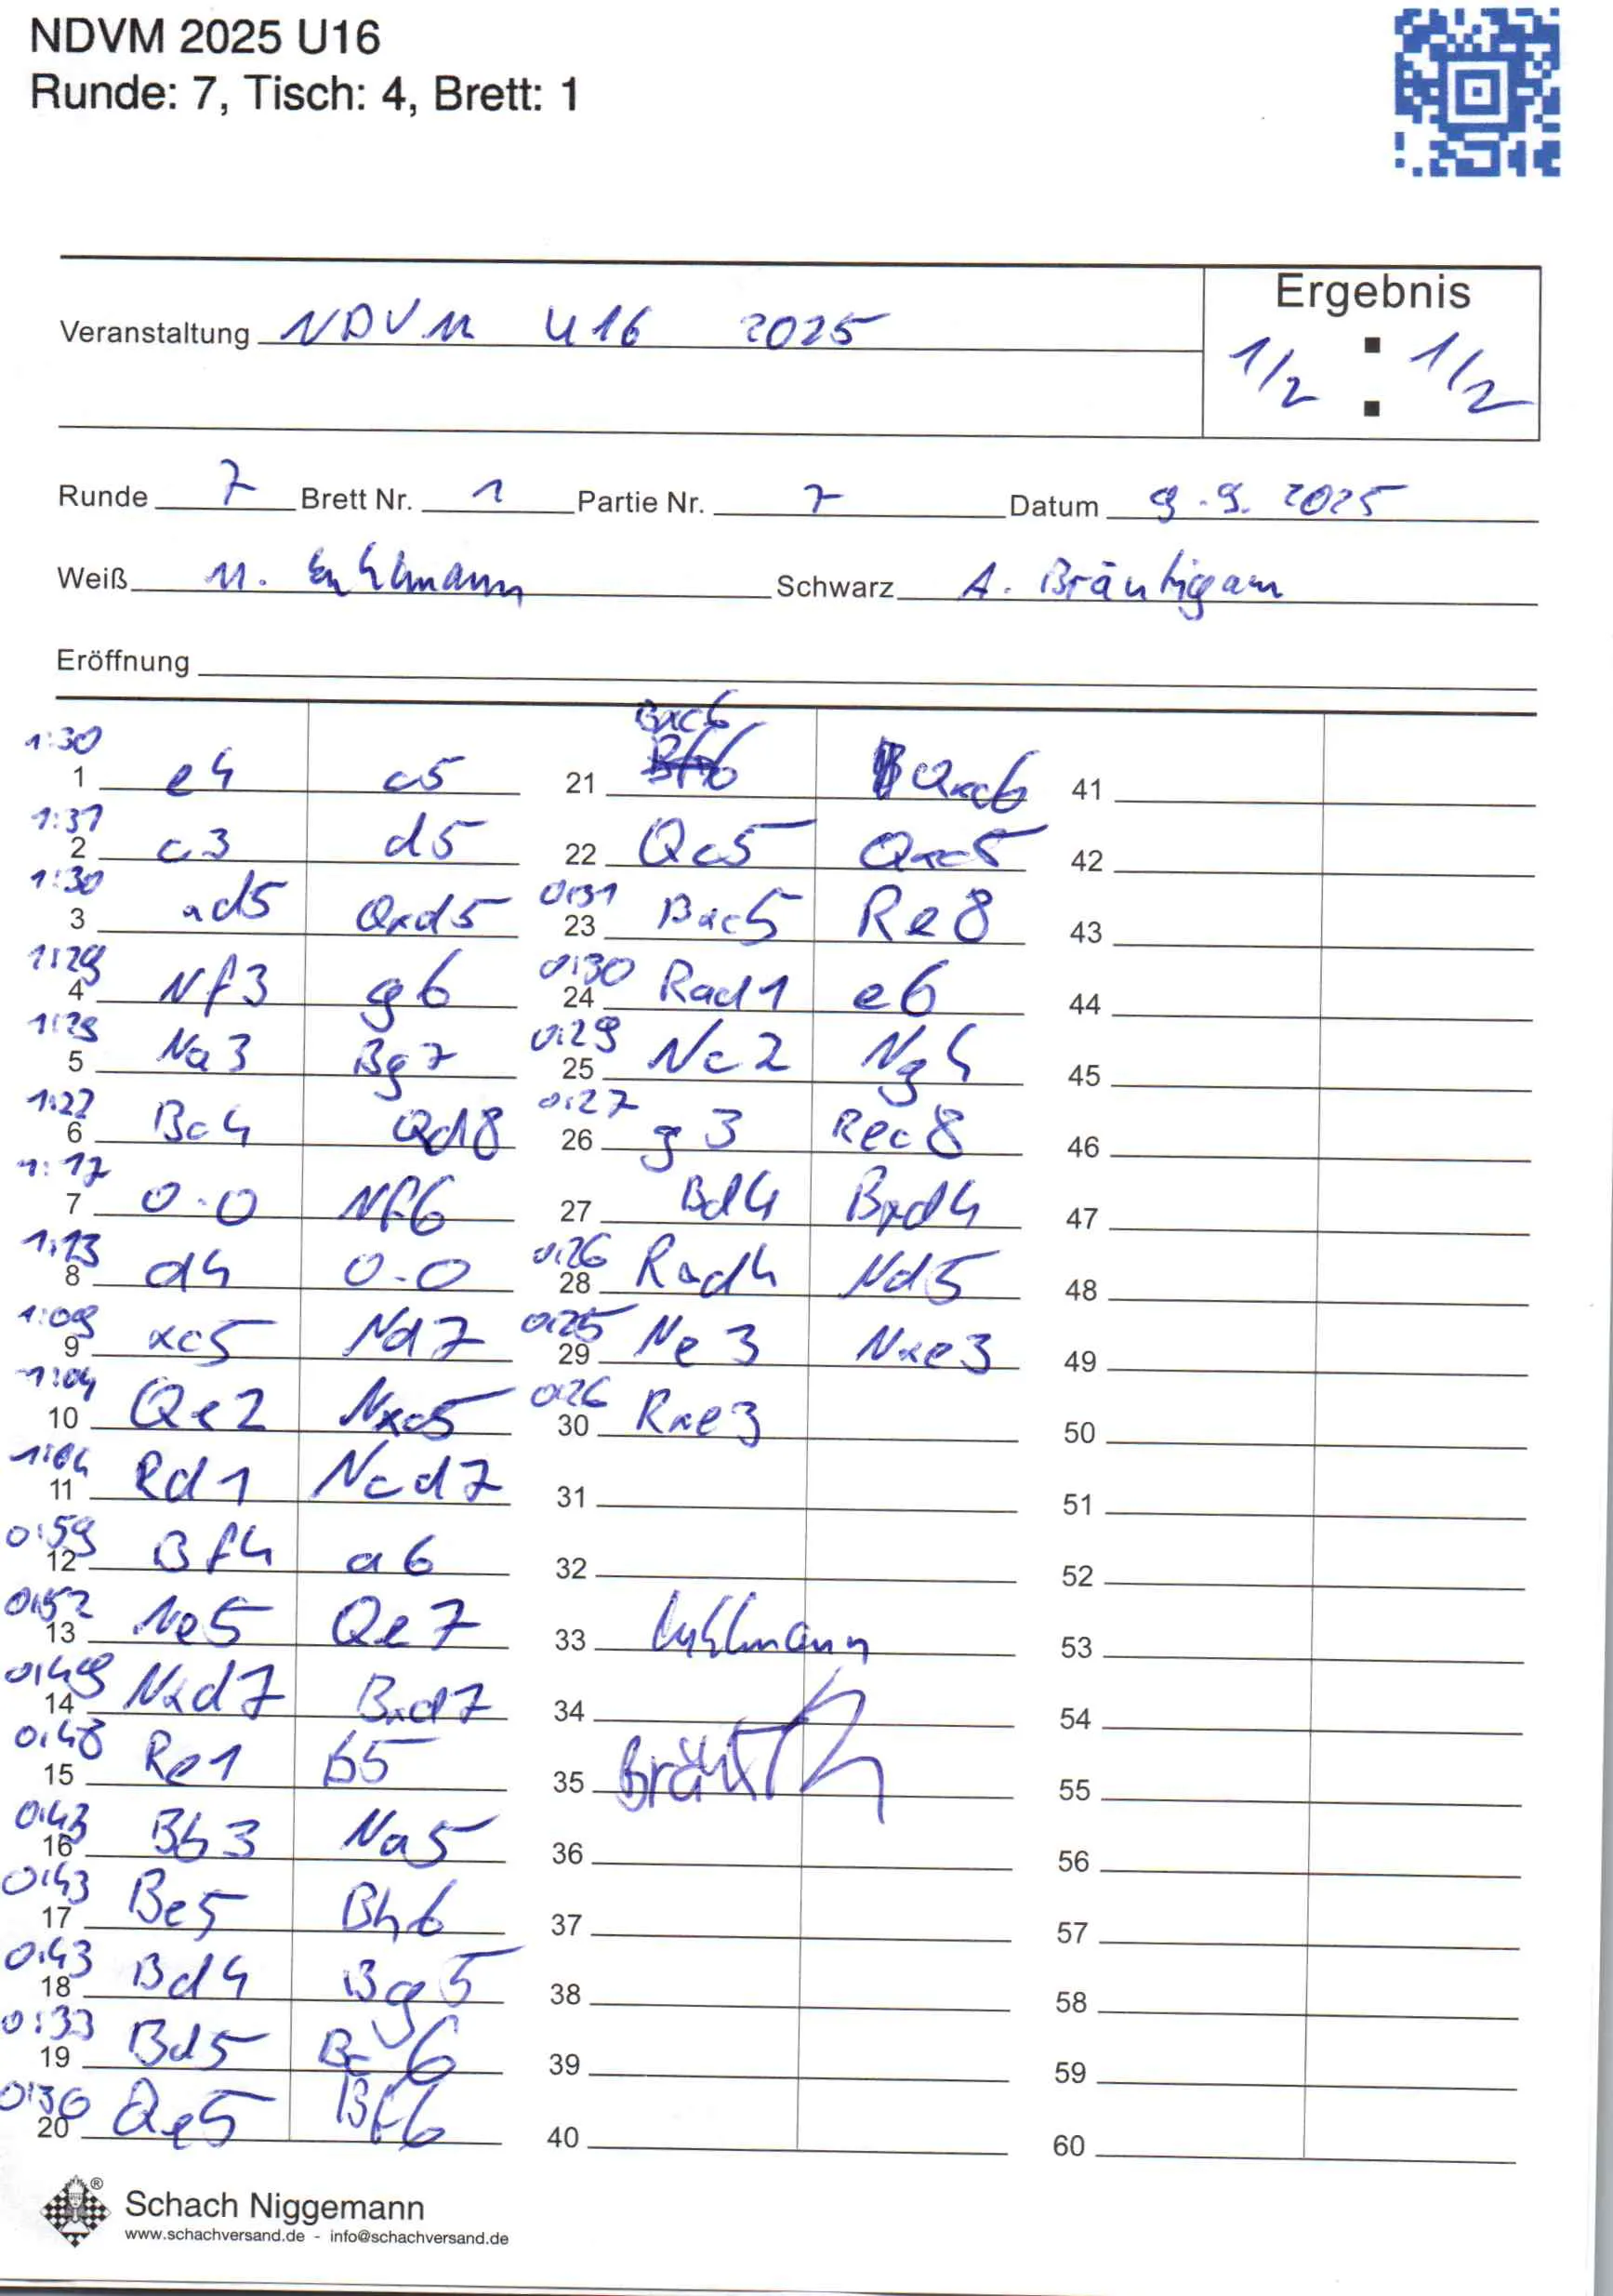 NDVM 2025 U16
Runde: 7, Tisch: 4, Brett: 1
Ergebnis
Veranstaltung NDVM U16 2025
1/2 : 1/2
Runde 7 Brett Nr. 1 Partie Nr. 7 Datum 9.9.2025
Weiß M. Schwarz A. Bräutigam
Eröffnung
1:30 1 e4 c5
1:31 2 c3 d5
1:30 3 xd5 Qxd5
1:29 4 Nf3 g6
1:29 5 Na3 Bg7
1:22 6 Bc4 Qd8
1:17 7 0-0 Nf6
1:13 8 d4 0-0
1:09 9 xc5 Nd7
1:04 10 Qe2 Nxc5
1:04 11 Rd1 Ncd7
0:59 12 Bf4 a6
0:52 13 Ne5 Qe7
0:49 14 Nxd7 Bxd7
0:48 15 Re1 b5
0:43 16 Bb3 Na5
0:43 17 Be5 Bh6
0:43 18 Bd4 Bg5
0:33 19 Bd5 Bc6
0:36 20 Qe5 Bf6
21 Bxc6 Qxc6
22 Qc5 Qxc5
0:31 23 Bxc5 Re8
0:30 24 Rad1 e6
0:29 25 Nc2 Ng4
0:27 26 g3 Rec8
27 Bd4 Bxd4
0:26 28 Rxd4 Nd5
0:25 29 Ne3 Nxe3
0:26 30 Rxe3
31
32
33
34
35
36
37
38
39
40
41
42
43
44
45
46
47
48
49
50
51
52
53
54
55
56
57
58
59
60
® Schach Niggemann
www.schachversand.de - info@schachversand.de